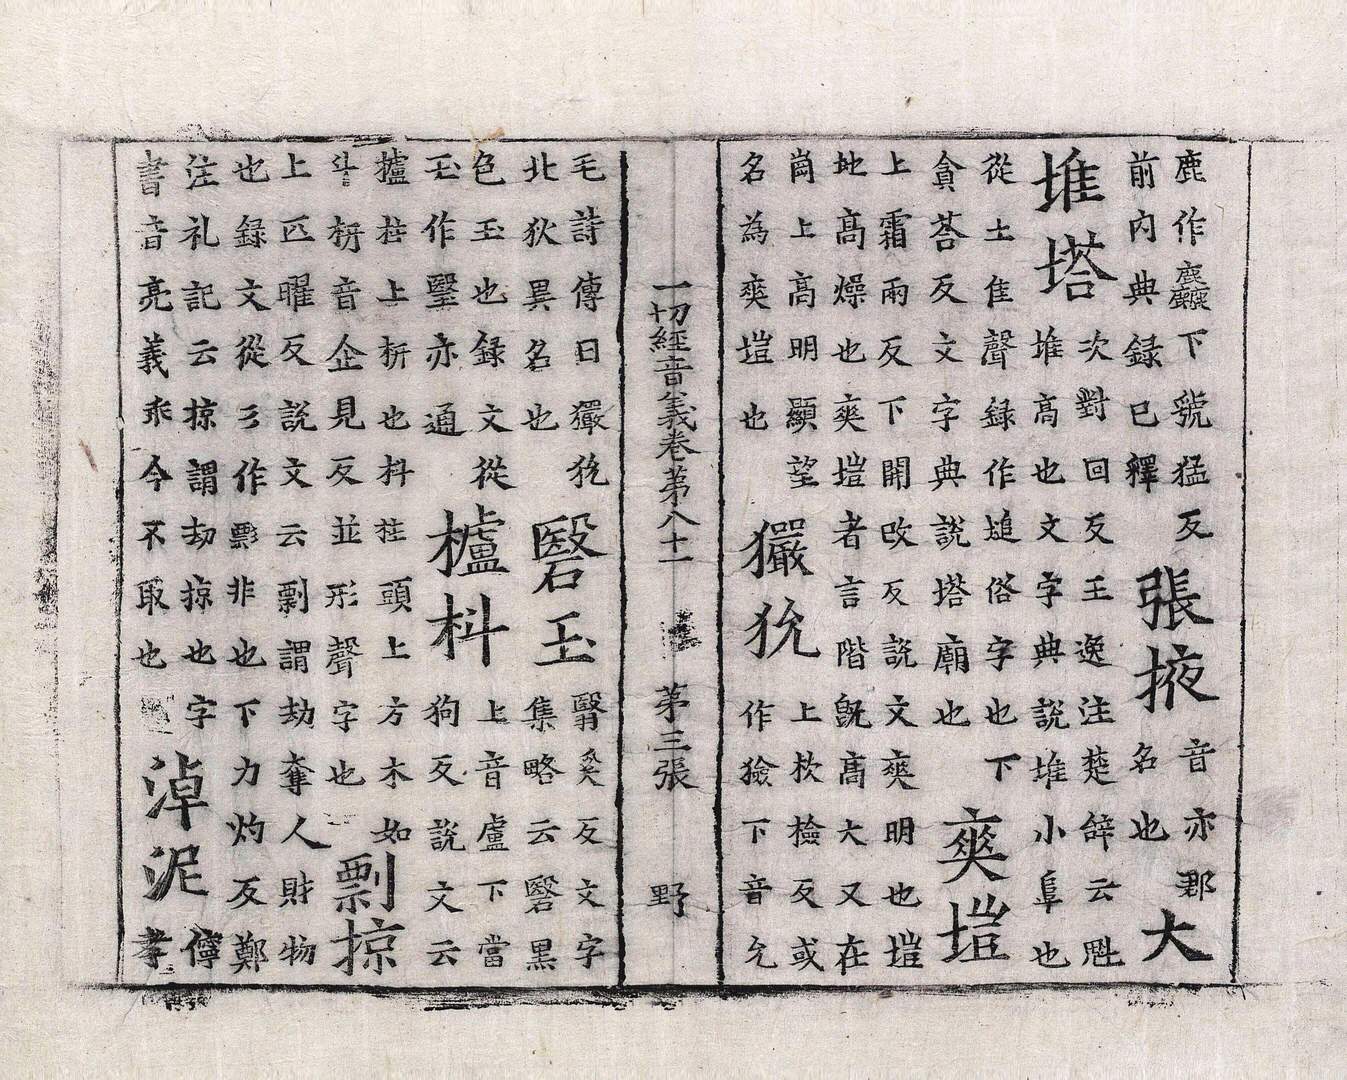 鹿作麤下虢猛反
前内典録已釋
張掖
音亦郡
名也
大
堆塔
次對回反王逸注楚辭云魁
堆高也文字典說堆小阜也
從土隹聲録作塠俗字也下
貪荅反文字典說塔廟也
爽塏
上霜兩反下開改反說文爽明也塏
地高燥也爽塏者言階既高大又在
崗上高明顯望
名為爽塏也
玁狁
上杴撿反或
作獫下音允
一切經音義卷第八十一 第三張 野
毛詩傳曰玁狁
北狄異名也
䃜玉
奚反文字
集略云䃜黑
色玉也録文從
玉作瑿亦通
櫨枓
上音盧下當
狗反說文云
櫨柱上枅也枓柱頭上方木如
斗枅音企見反並形聲字也
剽掠
上匹曜反說文云剽謂劫奪人財物
也録文從彡作彯非也下力灼反鄭
注礼記云掠謂劫掠也字
書音亮義乖今不取也
淖泥
儜
孝